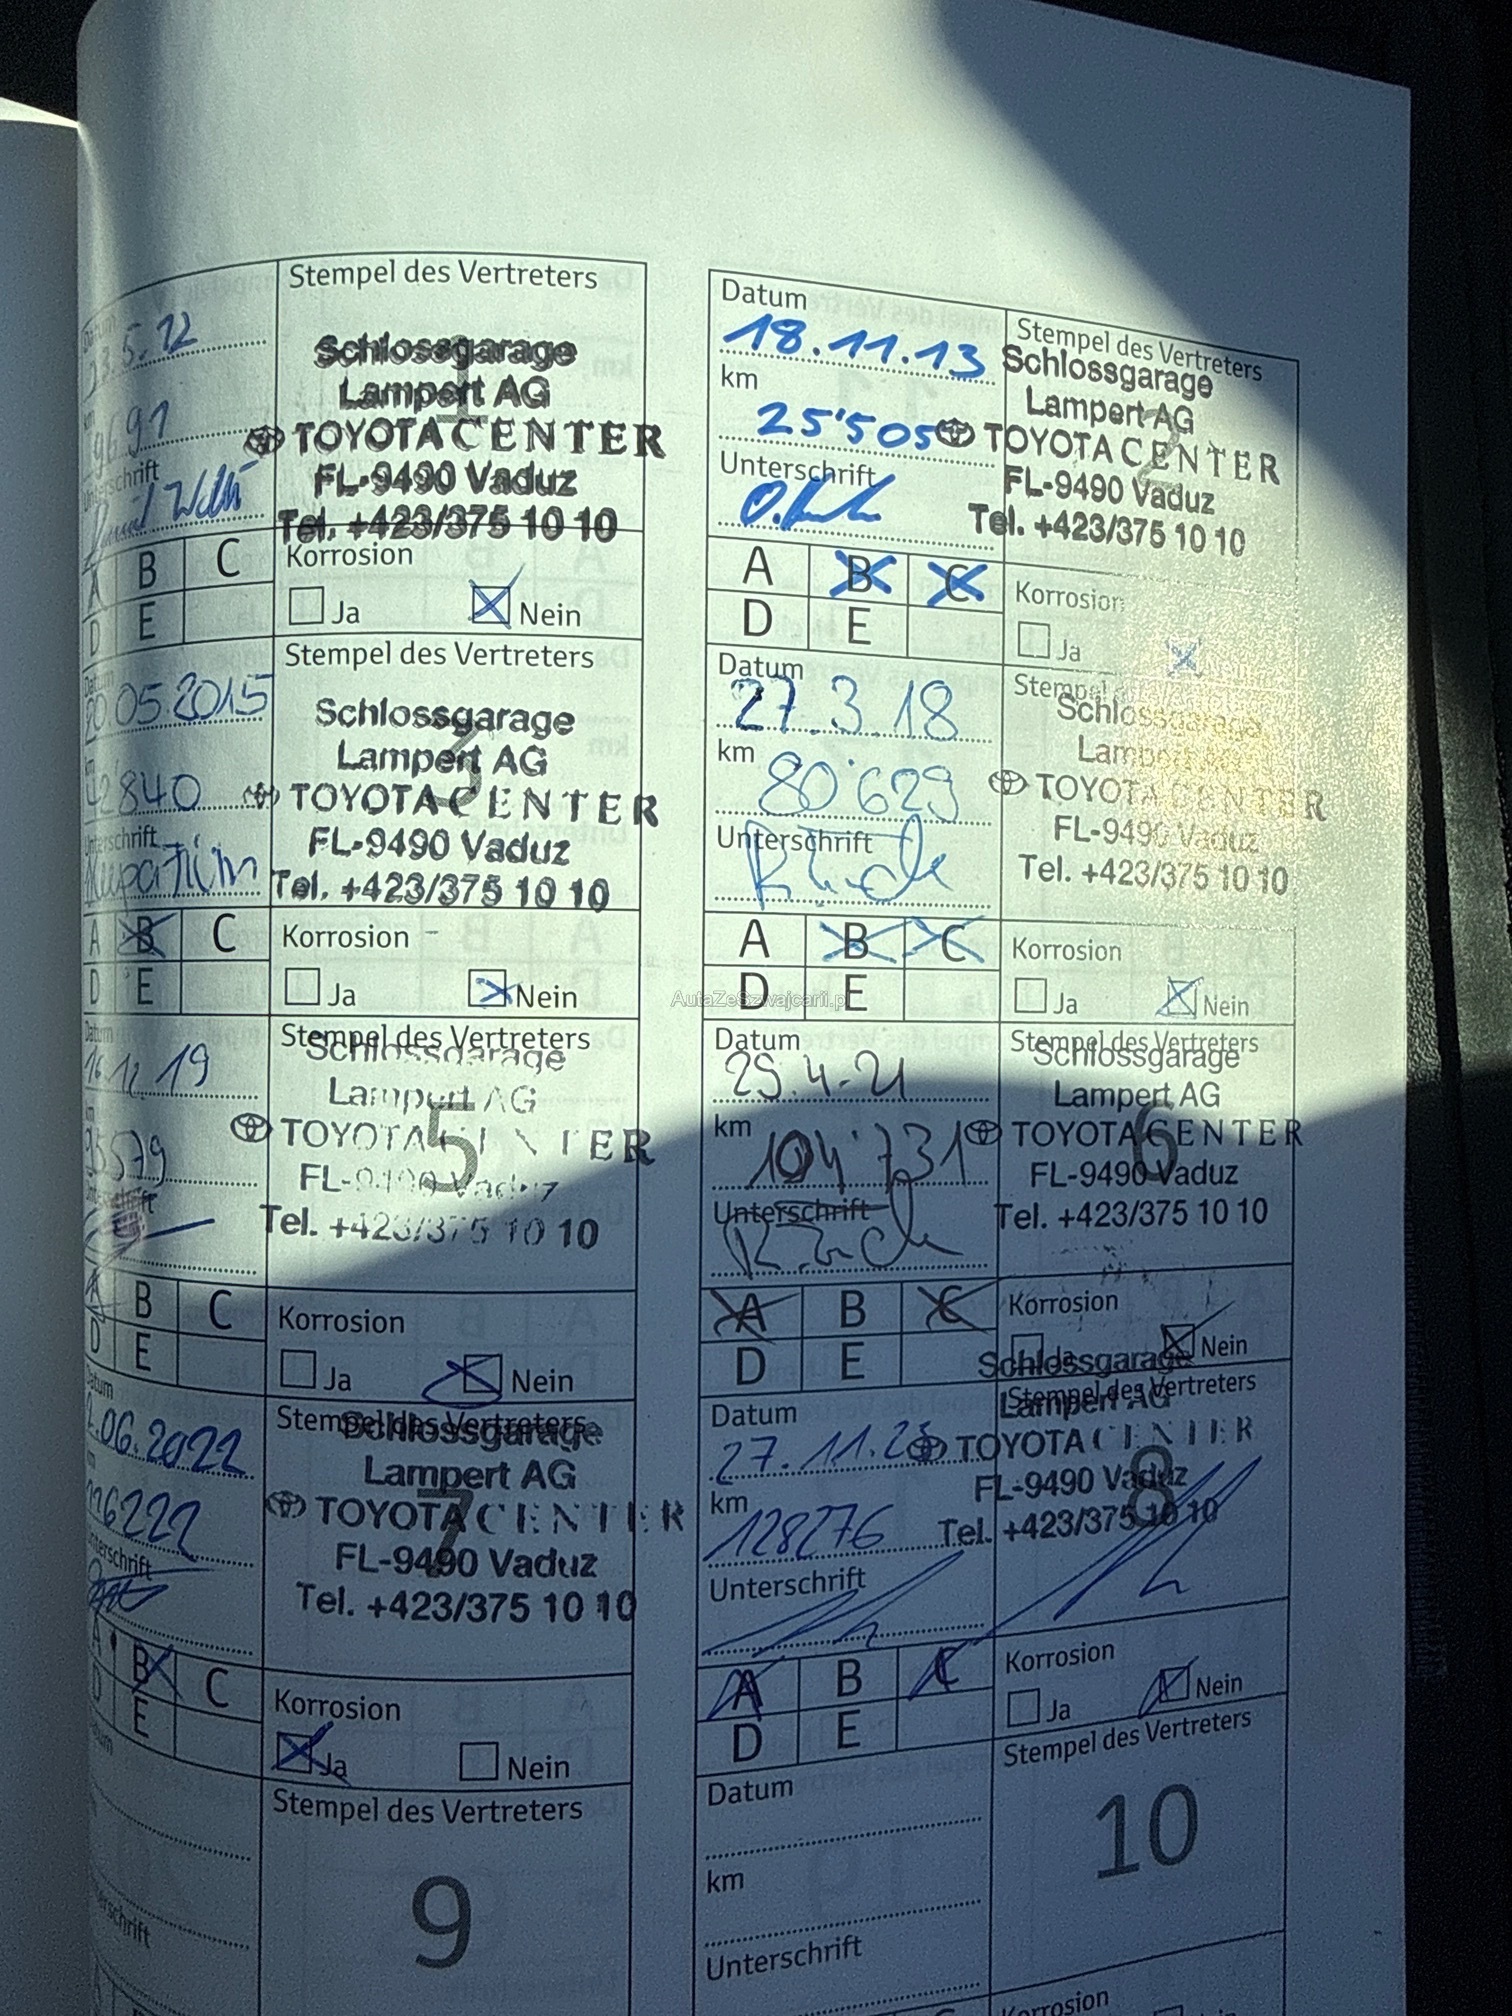 Stempel des Vertreters
23.5.12
9691
Unterschrift
Schlossgarage
Lampert AG
TOYOTA CENTER
FL-9490 Vaduz
Tel. +423/375 10 10
A B C
D E
Korrosion
Ja Nein
Datum
18.11.13
km
25'505
Unterschrift
Stempel des Vertreters
Schlossgarage
Lampert AG
TOYOTA CENTER
FL-9490 Vaduz
Tel. +423/375 10 10
2
A B C
D E
Korrosion
Ja
Datum
20.05.2015
km
42840
Unterschrift
Stempel des Vertreters
Schlossgarage
Lampert AG
TOYOTA CENTER
FL-9490 Vaduz
Tel. +423/375 10 10
3
A B C
D E
Korrosion
Ja Nein
Datum
27.3.18
km
80'629
Unterschrift
Schlossgarage
Lampert AG
TOYOTA CENTER
FL-9490 Vaduz
Tel. +423/375 10 10
A B C
D E
Korrosion
Ja Nein
AutaZeSzwajcarii.pl
Datum
16.12.19
km
93579
Stempel des Vertreters
Schlossgarage
Lampert AG
TOYOTA CENTER
FL-9490 Vaduz
Tel. +423/375 10 10
5
A B C
D E
Korrosion
Ja Nein
Datum
29.4.21
km
104'731
Unterschrift
Stempel des Vertreters
Schlossgarage
Lampert AG
TOYOTA CENTER
FL-9490 Vaduz
Tel. +423/375 10 10
6
A B C
D E
Korrosion
Ja Nein
Datum
.06.2022
126222
Unterschrift
Stempel des Vertreters
Schlossgarage
Lampert AG
TOYOTA CENTER
FL-9490 Vaduz
Tel. +423/375 10 10
7
A B C
D E
Korrosion
Ja Nein
Datum
27.11.23
km
128276
Unterschrift
Schlossgarage
Stempel des Vertreters
Lampert AG
TOYOTA CENTER
FL-9490 Vaduz
Tel. +423/375 10 10
8
A B C
D E
Korrosion
Ja Nein
Stempel des Vertreters
9
Datum
km
Unterschrift
Stempel des Vertreters
10
Korrosion